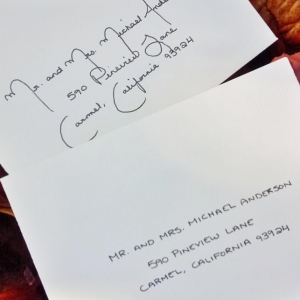 Mr. and Mrs. Michael
590 Pineview Lane
Carmel, California 93924
MR. AND MRS. MICHAEL ANDERSON
590 PINEVIEW LANE
CARMEL, CALIFORNIA 93924